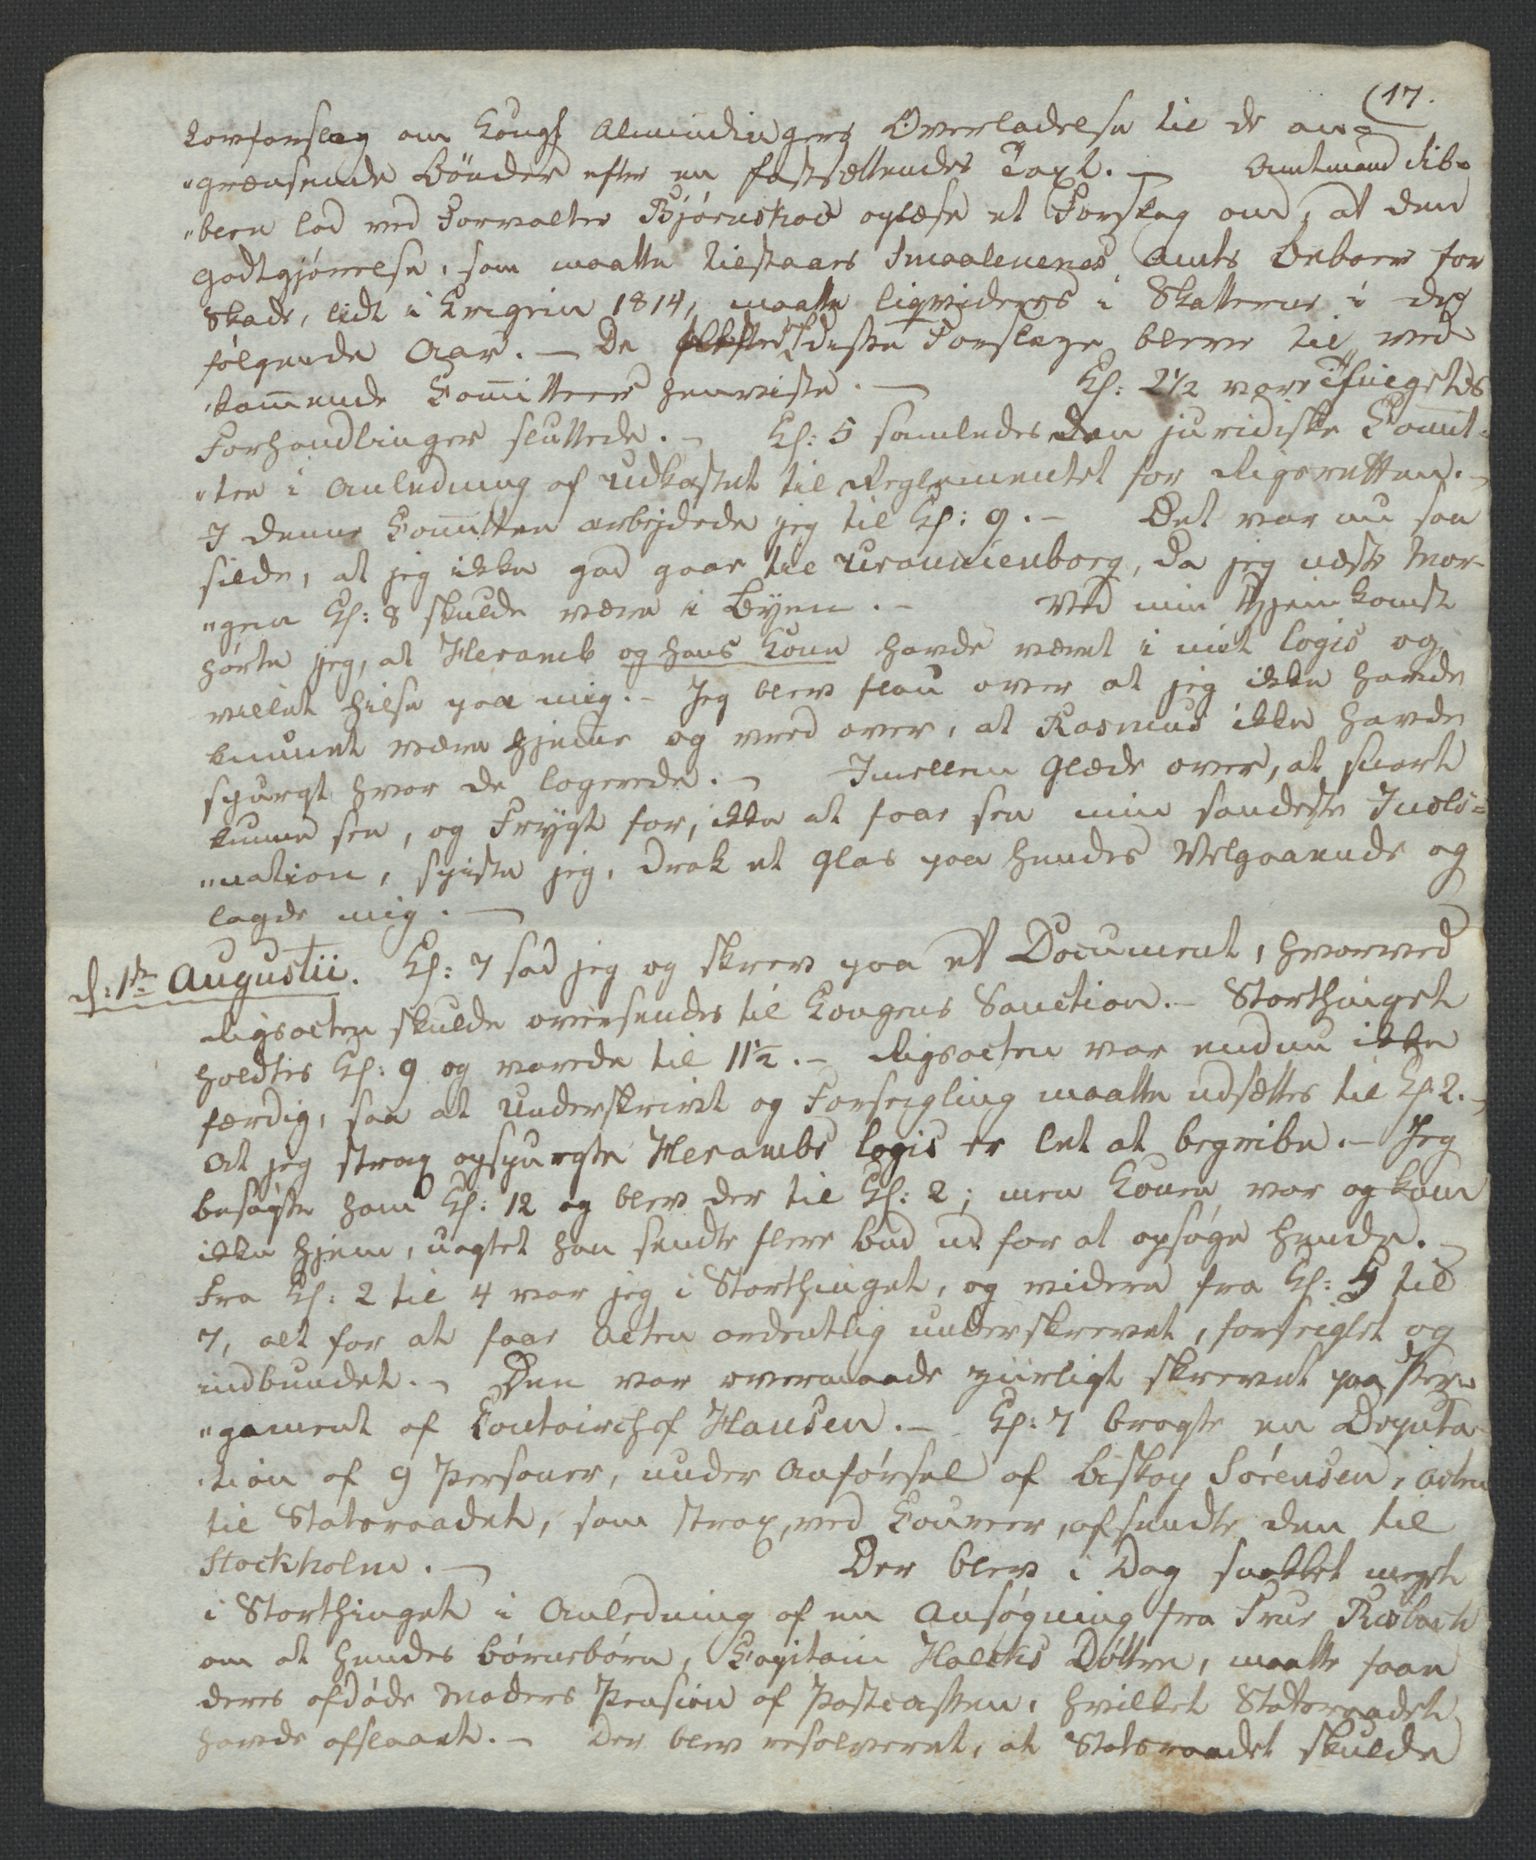 (17.
Lovforslag om Kongl Almindingers Overladelse til de an-
"grændsende Bønder efter en fastsættendes Taxt. — Amtmand Sib-
"bern lod ved Forvalter Bjørnskov oplæse et Forslag om, at den
Godtgjørelse, som maatte tilstaaes Smaalenenes Amts Beboer for
Skade, lidt i Krigen 1814, maatte liqvideres i Skatterne i de
følgende Aar. — De fleste af disse Forslage bleve til ved
"kommende Committeer henviste. — Kl: 2½ vare Thingets
Forhandlinger sluttede. — Kl: 5 samledes den juridiske Committ-
"tee i Anledning af Udkastet til Reglementet for Rigsretten. —
I denne Committee arbejdede jeg til Kl: 9. — Det var nu saa
silde, at jeg ikke gad gaae til Uranienborg, da jeg næste Mor-
"gen Kl: 8 skulde være i Byen. — Ved min Hjemkomst
hørte jeg, at Heramb og hans Kone havde været i mit Logis og
villet hilse paa mig. — Jeg blev flau over at jeg ikke havde
kunnet være hjemme og vred over, at Rasmus ikke havde
spurgt hvor de logerede. — Imellem Glæde over, at snart
kunne see, og Frygt for, ikke at faae see min sandeste Incli-
"nation, spiste jeg, drak et Glas paa hendes Velgaaende og
lagde mig. —
d: 1ste Augustii. Kl: 7 sad jeg og skrev paa et Document, hvorved
Rigsacten skulde oversendes til Kongens Sanction. — Storthinget
holdtes Kl: 9 og varede til 11½. — Rigsacten var endnu ikke
færdig, saa at Underskrivt og Forsegling maatte udsættes til Kl. 2. —
At jeg strax opspurgte Herambs Logis er let at begribe. — Jeg
besøgte ham Kl: 12 og blev der til Kl: 2; men Konen var og kom
ikke hjem, uagtet han sendte flere Bud ud for at opsøge hende. —
Fra Kl: 2 til 4 var jeg i Storthinget, og videre fra Kl: 5 til
7, alt for at faae Acten ordentlig underskrevet, forseiglet og
indbundet. — Den var overmaade ziirligt skrevet paa Per-
"gament af Contoirchef Hansen. — Kl: 7 bragte en Deputa-
"tion af 9 Personer, under Anførsel af Biskop Sørensen, Acten
til Statsraadet, som strax, ved Coureer, afsendte den til
Stockholm. — Der blev i Dag snakket meget
i Storthinget i Anledning af en Ansøgning fra Frue Rosbach
om at hendes Børnebørn, Capitain Holcks Døttre, maatte faae
deres afdøde Moders Pension af Postcassen, hvilket Statsraadet
havde afslaaet. — Der blev resolveret, at Statsraadet skulde